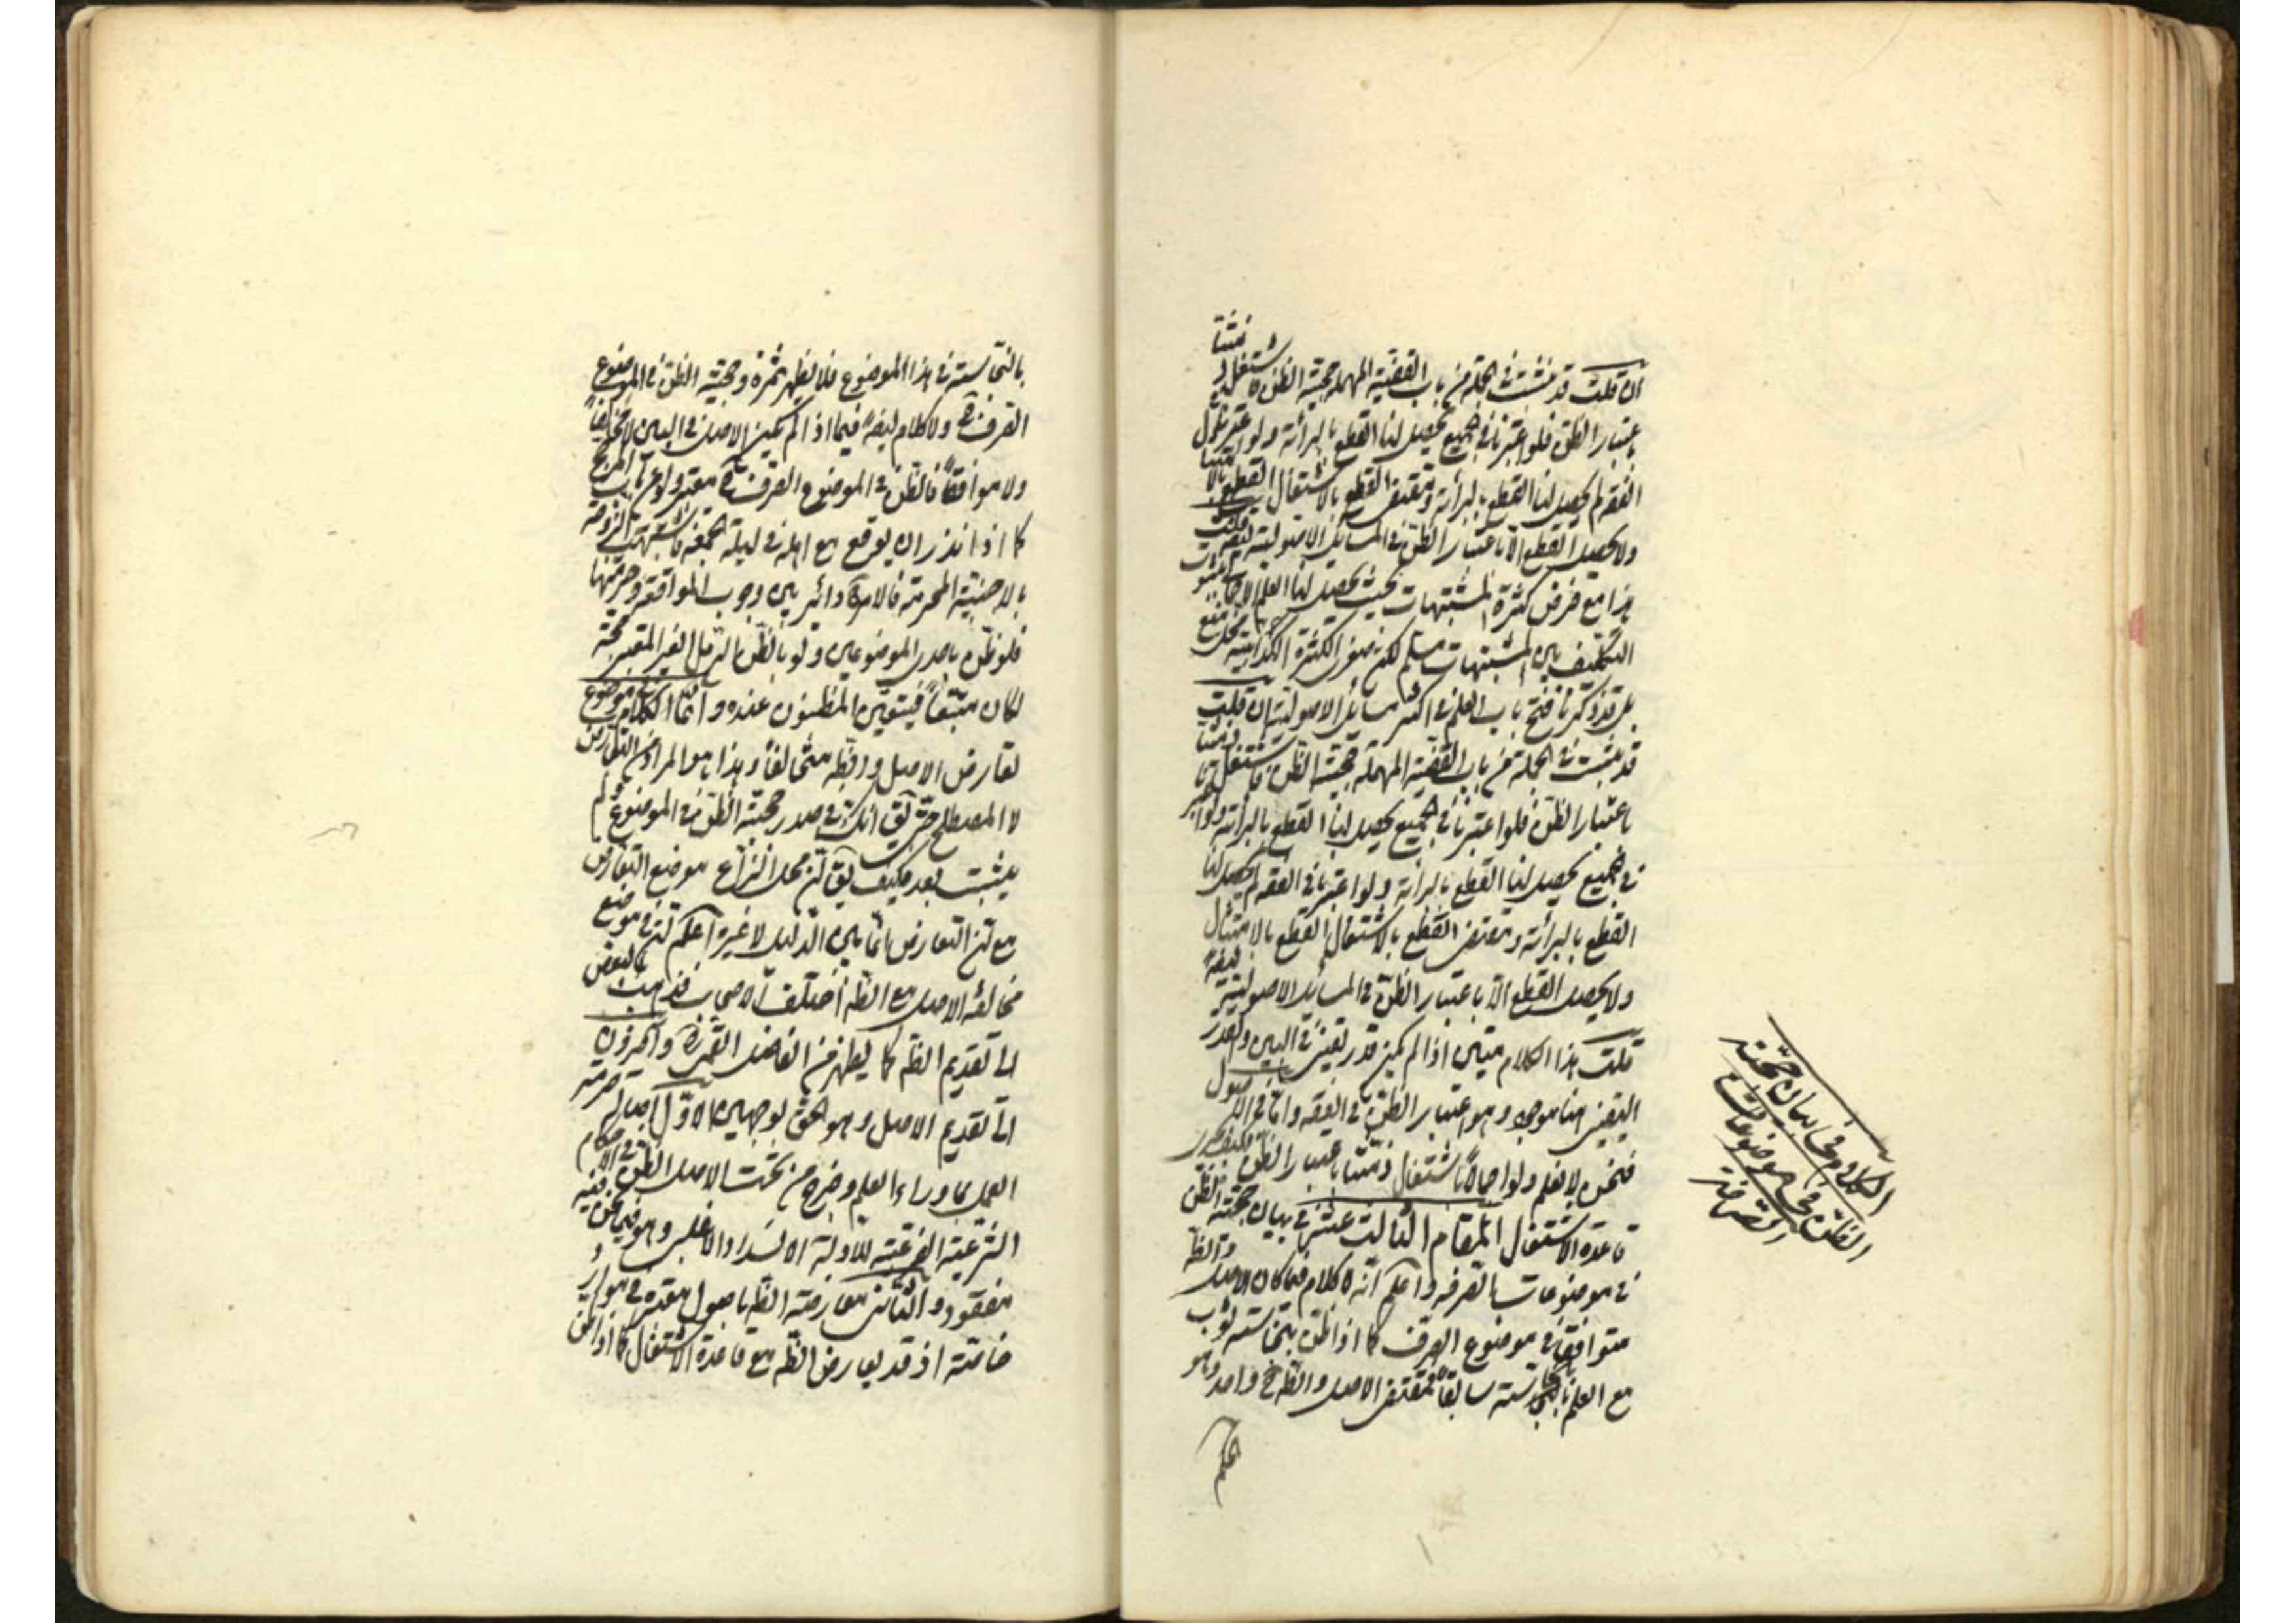 ان قلت قد ثبت في الجملة من باب القضية المهملة حجية الظن لاشتغال ذمتنا
باعتبار الظن فلو اعتبرنا في الجميع يحصل لنا القطع بالبرائة ولو اعتبرنا في
الفقه لم يحصل لنا القطع بالبرائة ومقتضى القطع بالاشتغال القطع بالامتثال
ولا يحصل القطع الا باعتبار الظن في المسائل الاصولية ايضا قلت
هذا مع فرض كثرة المشتبهات بحيث يحصل لنا العلم الاجمالي بثبوت
التكليف بين المشتبهات مسلم لكن صغرى الكثرة الكذائية محل منع
بل قد ذكرنا فتح باب العلم في اكثر مسائل الاصولية ان قلت
قد ثبت في الجملة من باب القضية المهملة حجية الظن فاشتغل ذمتنا
باعتبار الظن فلو اعتبرنا في الجميع يحصل لنا القطع بالبرائة ولو اعتبر
في الجميع يحصل لنا القطع بالبرائة ولو اعتبرنا في الفقه لم يحصل لنا
القطع بالبرائة ومقتضى القطع بالاشتغال القطع بالامتثال
ولا يحصل القطع الا باعتبار الظن في المسائل الاصولية ايضا
قلت هذا الكلام متين اذا لم يكن قدر تقيني في البين والقدر
اليقيني هنا موجود وهو اعتبار الظن في الفقه واما في الاصول
فنحن لا نعلم ولو اجمالا باشتغال ذمتنا باعتبار الظن
قاعدة الاشتغال المقام الثالث عشر في بيان حجية الظن
في موضوعات الصرفه واعلم انه لا كلام فيما كان الاصل والظن
متوافقا في موضوع الصرف كما اذا ظن بنجاسة ثوب
مع العلم بالنجاسة سابقا فمقتضى الاصل والظن ح واحد وهو
الحكم
الكلام في بيان حجية
الظن في موضوعات
الصرفة
بالنجاسة في هذا الموضوع فلا يظهر ثمرة وحجية الظن في الموضوع
الصرف ح ولا كلام ايضا فيما اذا لم يكن الاصل في البين لا مخالفا
ولا موافقا فالظن في الموضوع الصرف ح معتبر ولو من باب المرجح
كما اذا نذر ان يوقع مع اهله في ليلة الجمعة فاشتبهت الزوجة
بالاجنبية المحرمة فالامر دائر بين وجوب المواقعة وحرمتها
فلو ظن باحدى الموضوعين ولو بالظن بالرمل الغير المعتبر حجة
لكان متبعا فيتعين المظنون عنده وانما الكلام في موضوع
تعارض الاصل والظن متخالفا وهذا هو المراد من التعارض
لا المصطلح حتى يق انك في صدر حجية الظن في الموضوع ولم
يثبت بعد فكيف يق ان محل النزاع موضع التعارض
مع ان التعارض انما بين الدليل لا غير اعلم ان في موضع
مخالفة الاصل مع الظن اختلف الاصحاب فذهب بعض
الى تقديم الظن كما يظهر من الفاضل القمي ره وآخرون
الى تقديم الاصل وهو الحق بوجهين الاول اصالة حرمة
العمل بما وراء العلم وخرج من تحت الاصل الظن في الاحكام
الشرعية الفرعية للادلة الانسداد والاغلب وهو فيما نحن فيه
مفقود والثاني معارضة الظن باصول معتبرة في موارد
خاصة اذ قد يعارض الظن مع قاعدة الاشتغال كما اذا ظن